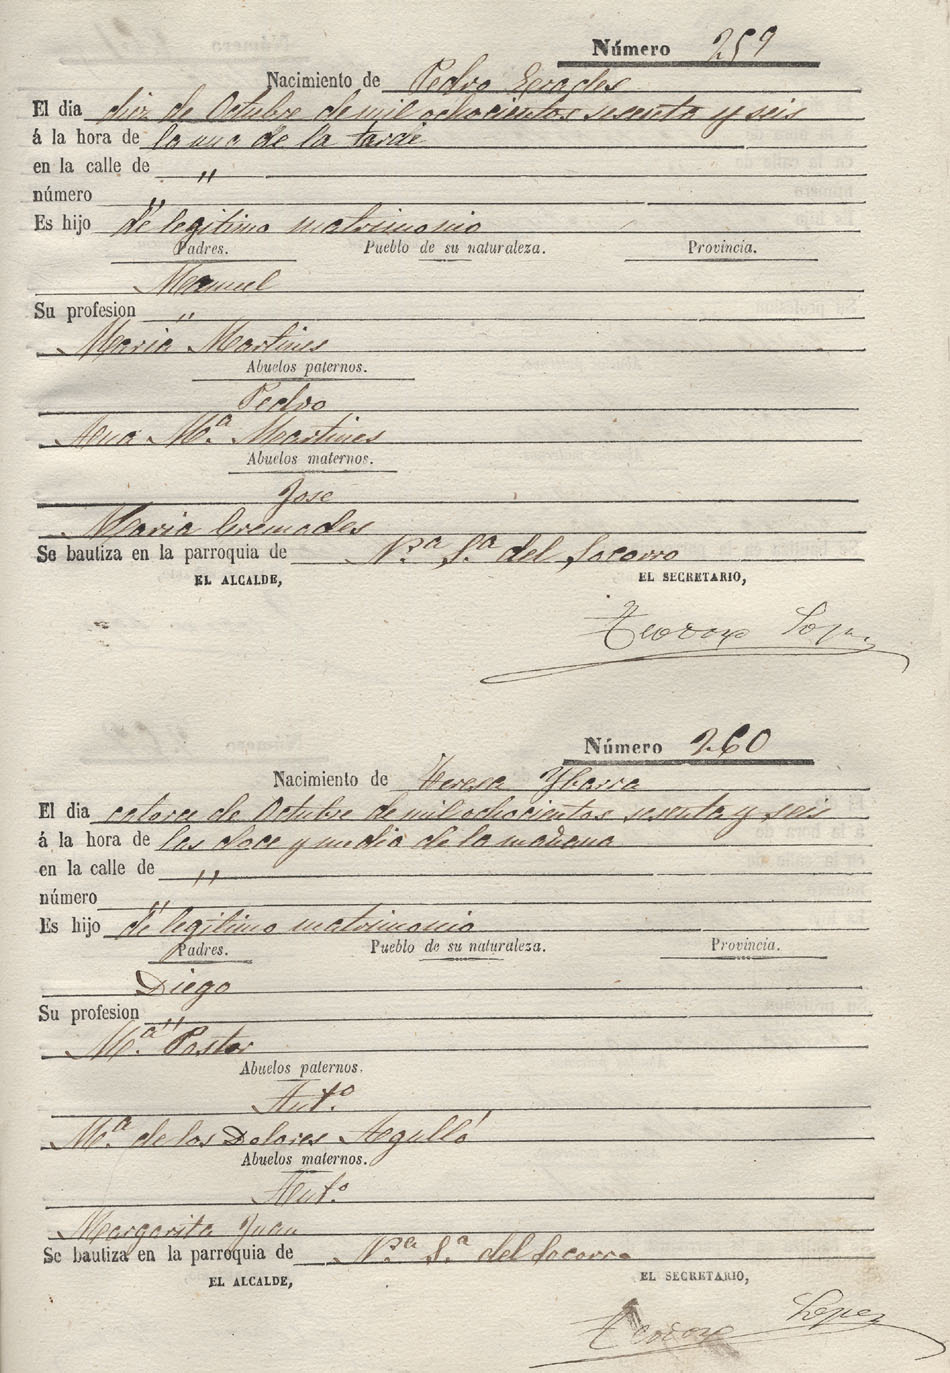 Número 259
Nacimiento de Pedro
El dia diez de Octubre de mil ochocientos sesenta y seis
á la hora de la una de la tarde
en la calle de "
número "
Es hijo de legitimo matrimonio
Padres. Pueblo de su naturaleza. Provincia.
Manuel
Su profesion "
Maria Martines
Abuelos paternos.
Pedro
Ana M.ª Martines
Abuelos maternos.
Jose
Maria Cremades
Se bautiza en la parroquia de N.ª S.ª del Socorro
EL ALCALDE, EL SECRETARIO,
Teodoro Lopez
Número 260
Nacimiento de Teresa Ybarra
El dia catorce de Octubre de mil ochocientos sesenta y seis
á la hora de las doce y media de la mañana
en la calle de "
número "
Es hijo de legitimo matrimonio
Padres. Pueblo de su naturaleza. Provincia.
Diego
Su profesion "
M.ª Pastor
Abuelos paternos.
Ant.º
M.ª de los Dolores Agulló
Abuelos maternos.
Ant.º
Margarita Juan
Se bautiza en la parroquia de N.ª S.ª del Socorro
EL ALCALDE, EL SECRETARIO,
Teodoro Lopez